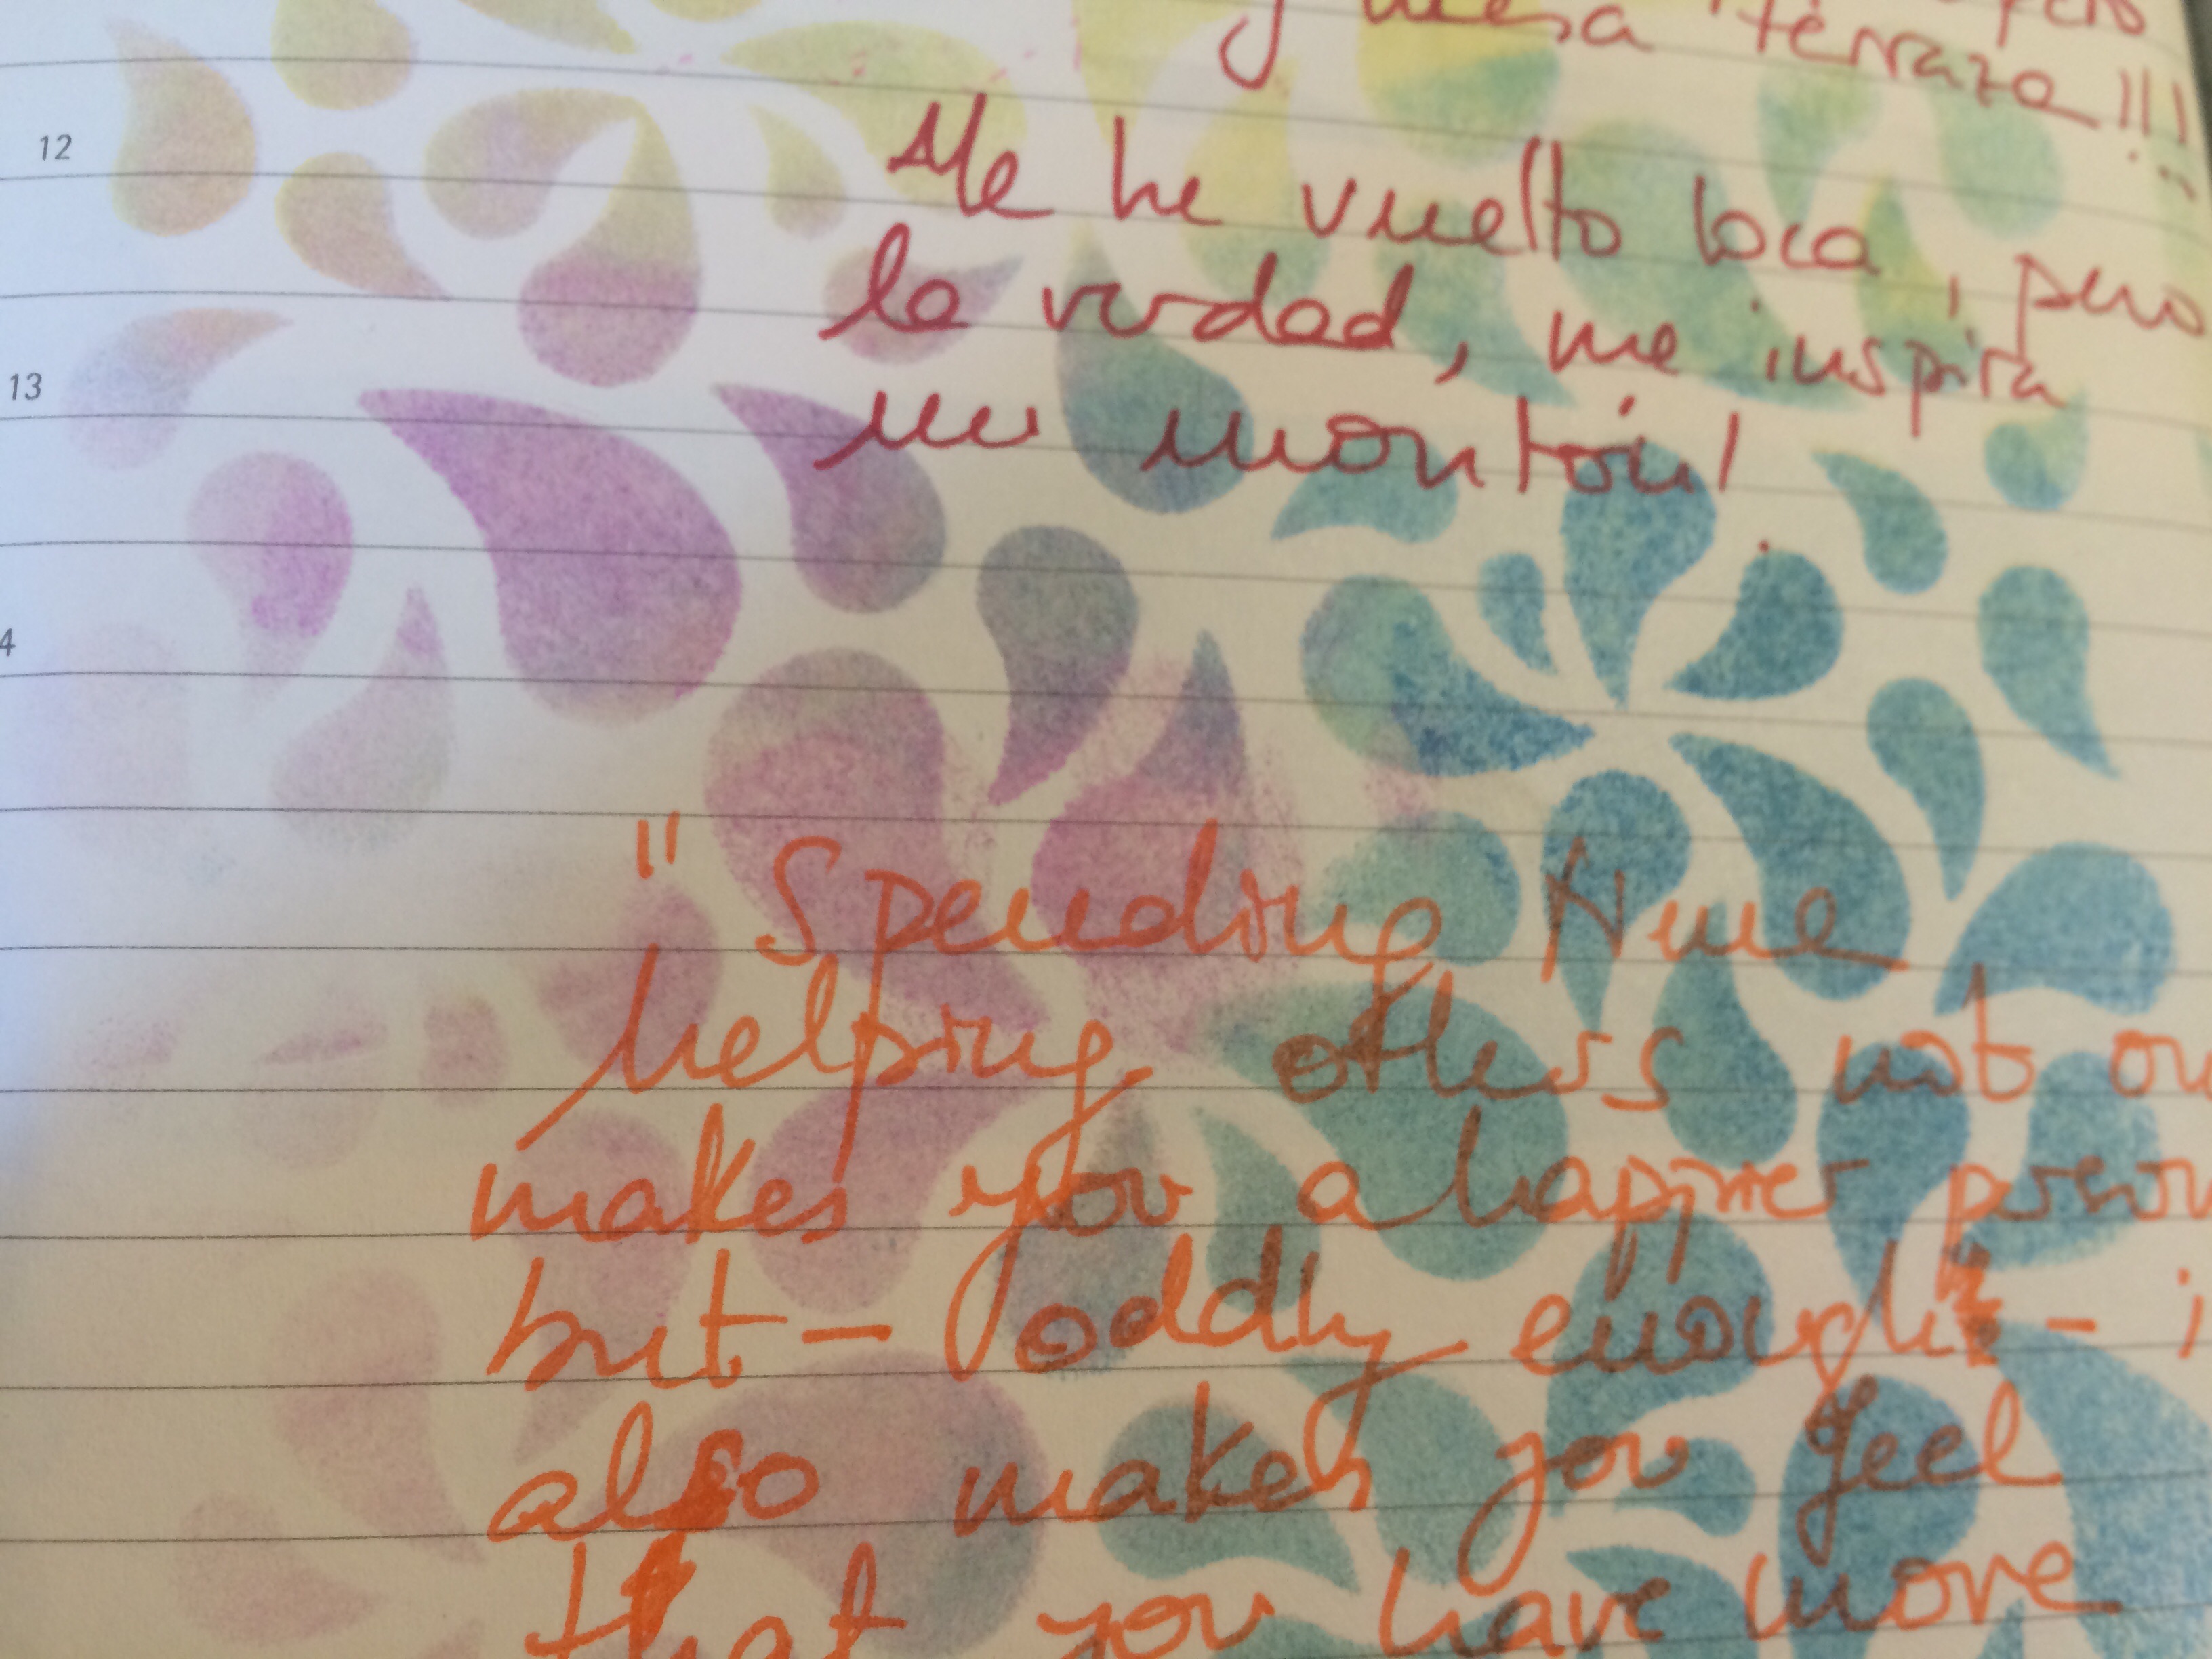 y mesa terraza!!!
12
Me he vuelto loca, pero
la verdad, me inspira
13
un montón!
4
"Spending time
helping others not
makes you a happier person
but - oddly enough -
also makes you feel
that you have more